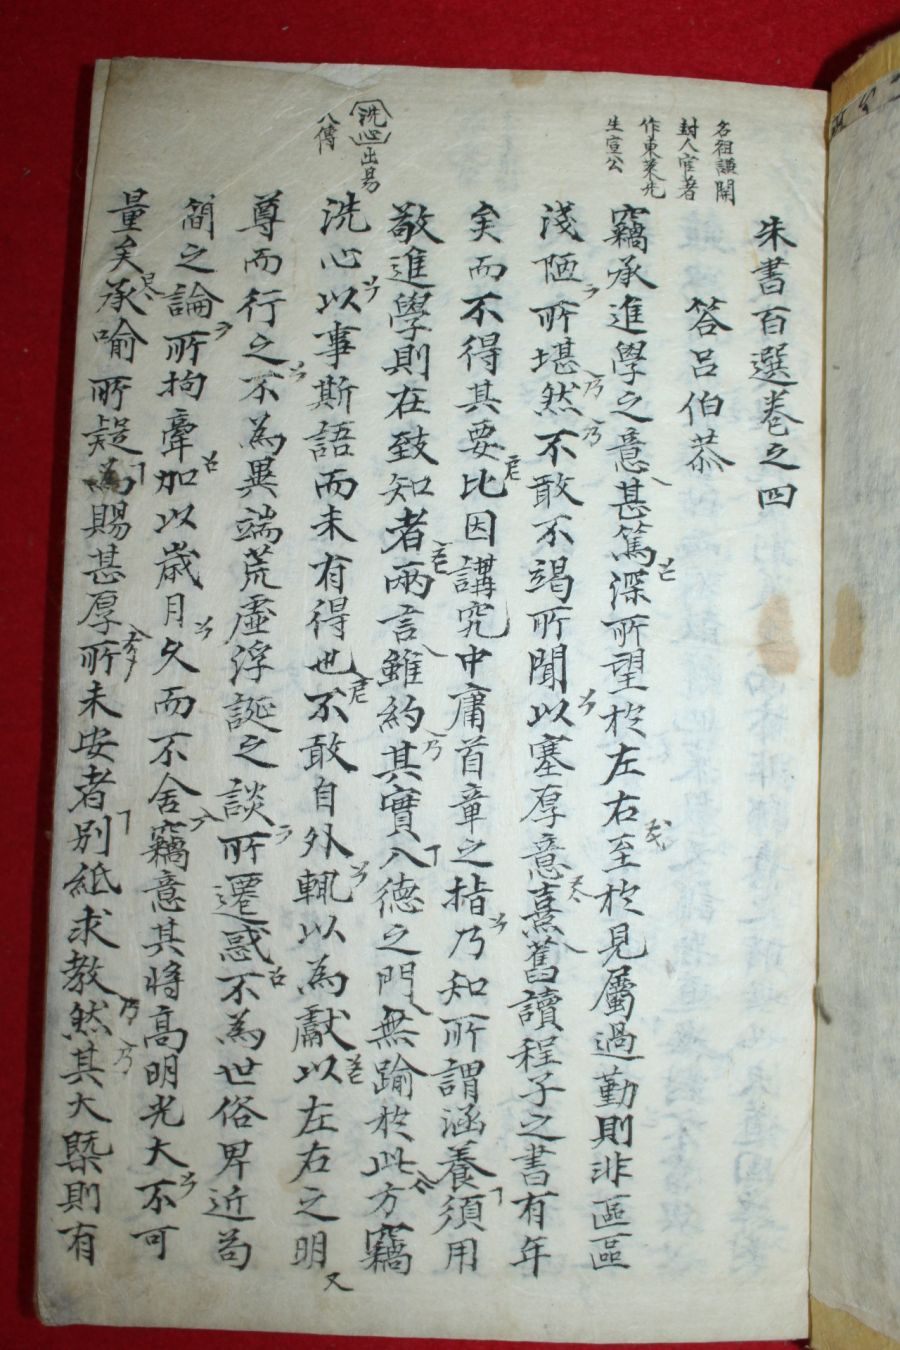 朱書百選卷之四
答呂伯恭
竊承進學之意甚篤深所望於左右至於見屬過勤則非區區
淺陋所堪然不敢不竭所聞以塞厚意熹舊讀程子之書有年
矣而不得其要比因講究中庸首章之指乃知所謂涵養須用
敬進學則在致知者兩言雖約其實入德之門無踰於此方竊
洗心以事斯語而未有得也不敢自外輒以為獻以左右之明
尊而行之不為異端荒虛浮誕之談所遷惑不為世俗卑近苟
簡之論所拘牽加以歲月久而不舍竊意其將高明光大不可
量矣承喻所疑為賜甚厚所未安者別紙求教然其大槩則有
又
名祖謙開
封人官著
作東萊先
生宣公
洗心出易
八傳